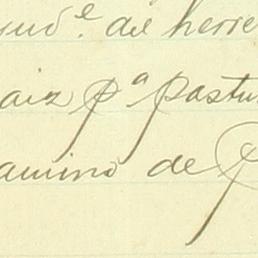 de herre
aiz pª pastu
amino de